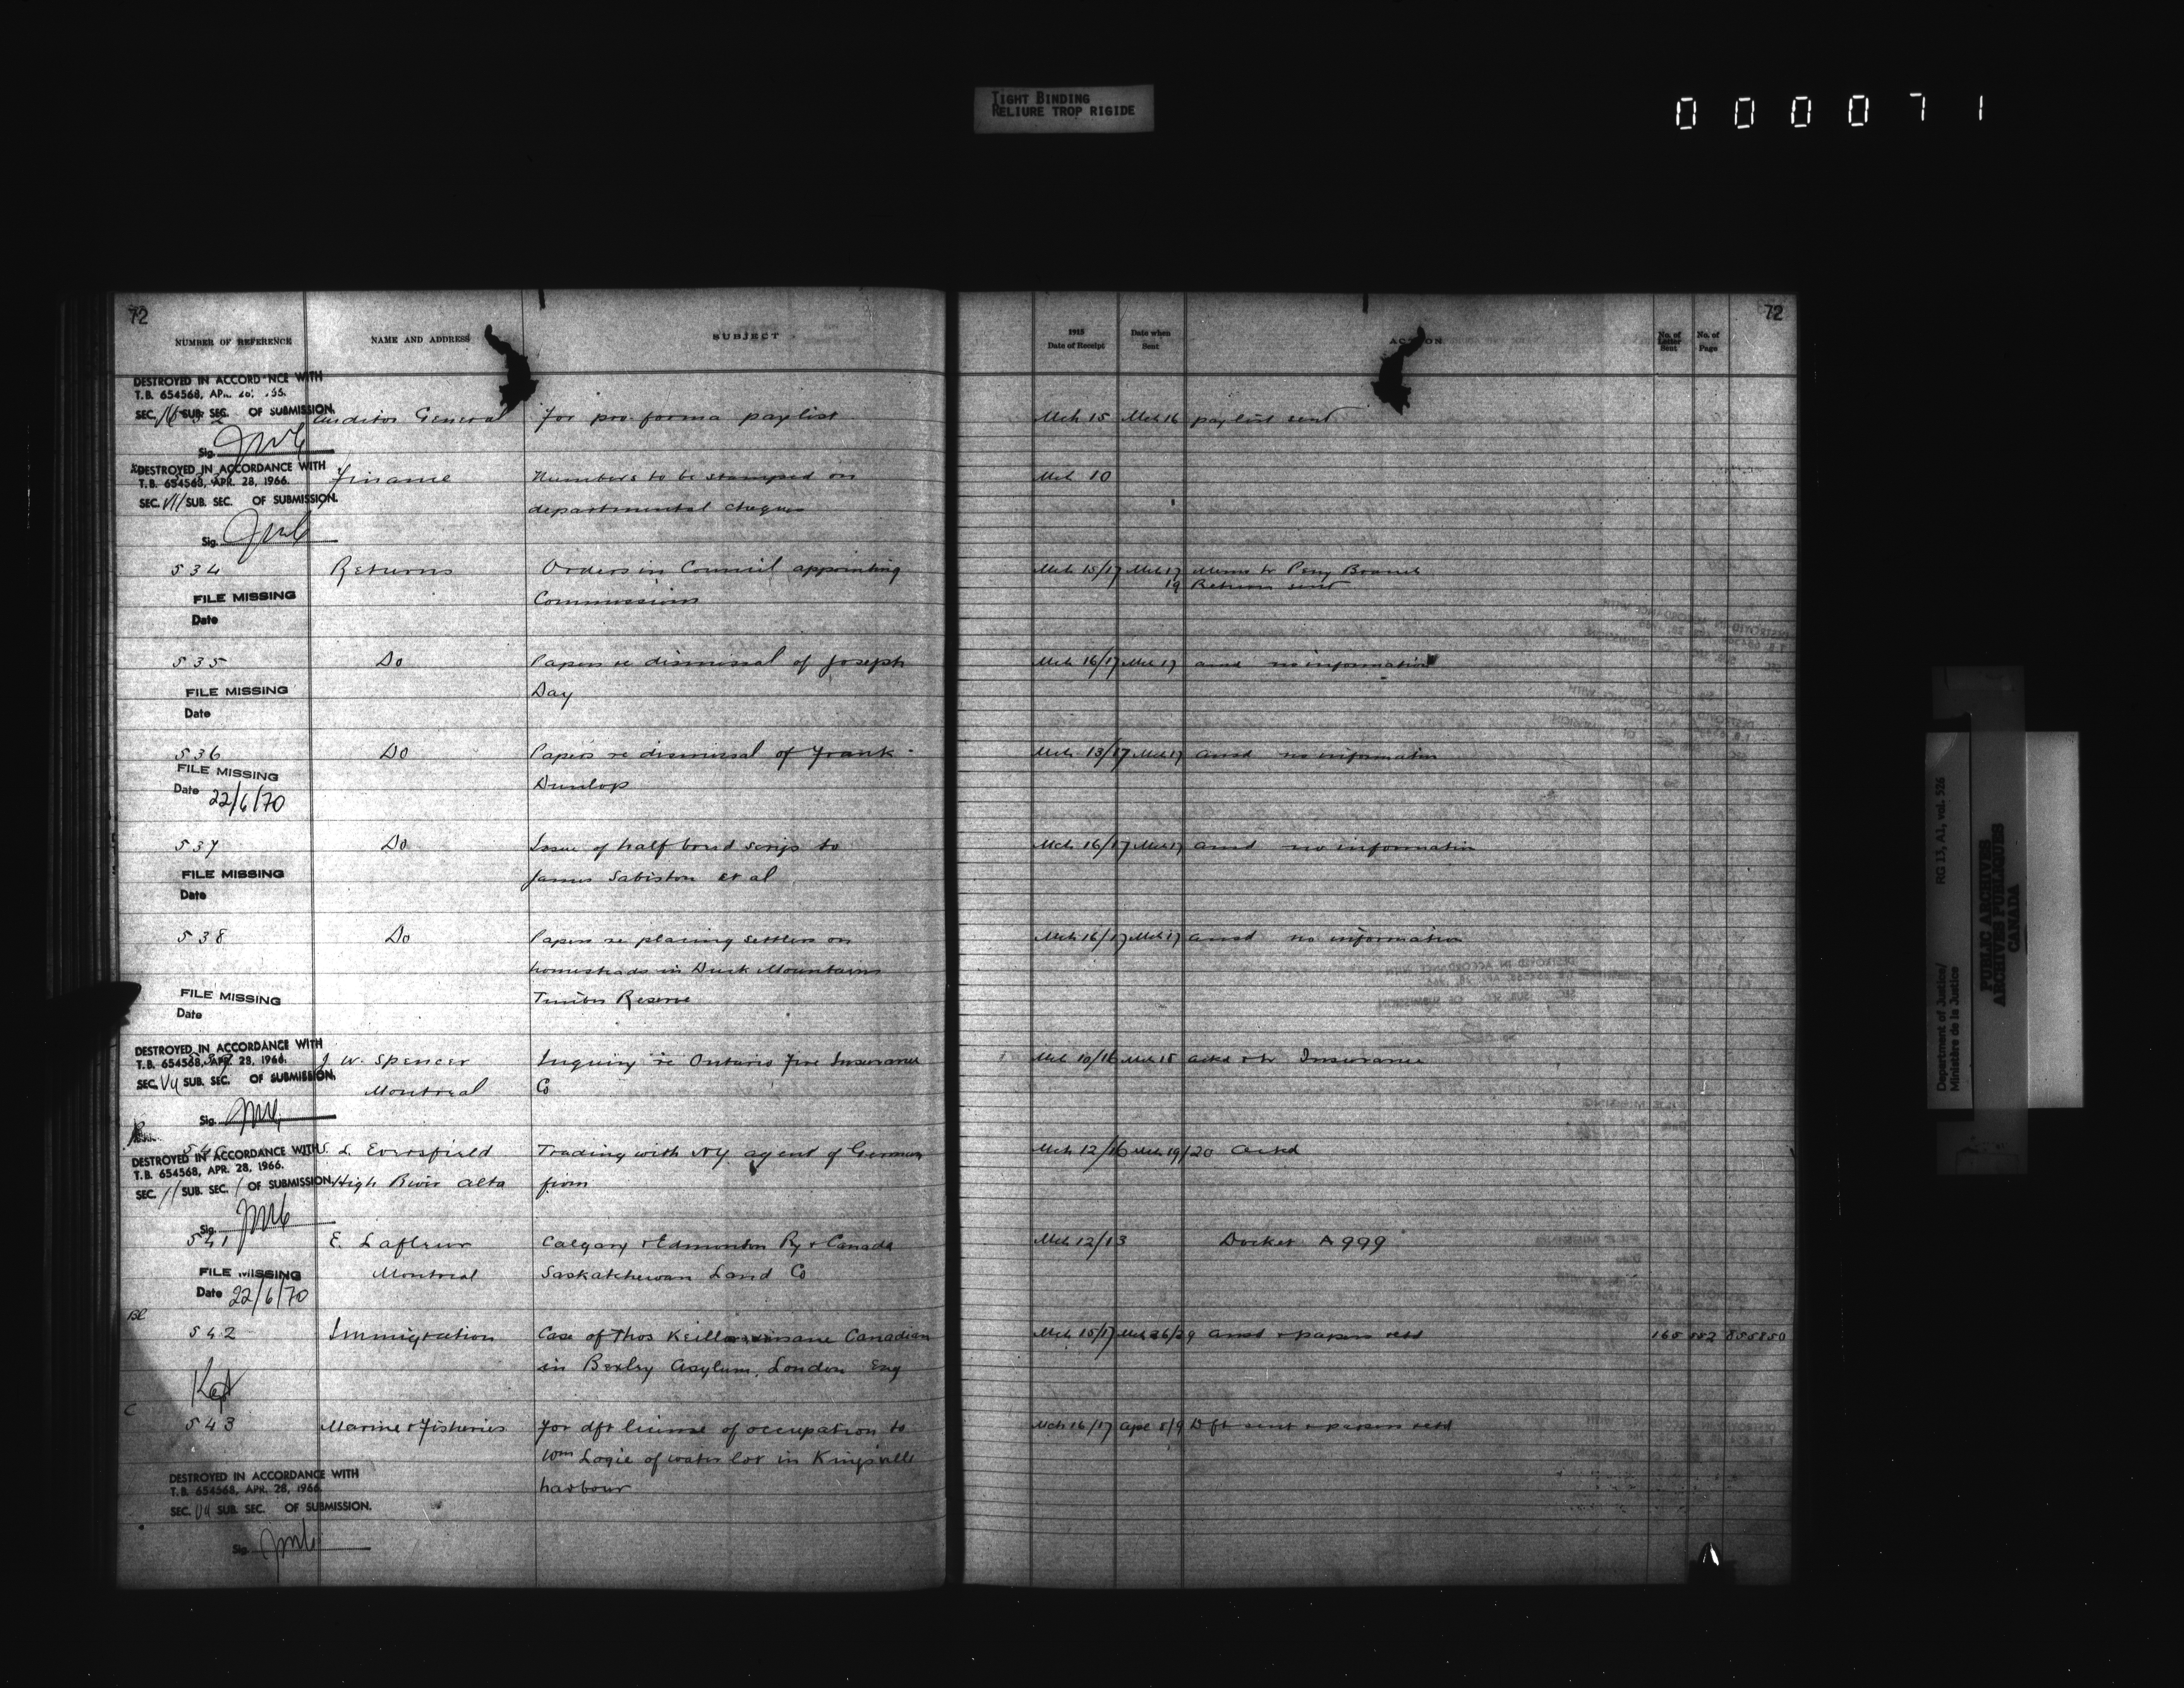 TIGHT BINDING
RELIURE TROP RIGIDE
000071
72
72
NUMBER OF REFERENCE NAME AND ADDRESS SUBJECT 1915 Date of Receipt Date when Sent ACTION No. of Letter Sent No. of Page
DESTROYED IN ACCORDANCE WITH
T.B. 654568, APR. 28, 1966.
SEC. SUB. SEC. OF SUBMISSION.
Auditor General For pro forma paylist Mch 15 Mch 16 paylist sent
Sig.
DESTROYED IN ACCORDANCE WITH
T.B. 654568, APR. 28, 1966.
Finance Numbers to be stamped on Mch 10
SEC. VII SUB. SEC. OF SUBMISSION.
departmental cheques
Sig.
534 Returns Orders in Council appointing Mch 15/17 Mch 17 Memo to Peny Branch
19 Return sent
FILE MISSING Commissions
Date
535 Do Papers re dismissal of Joseph Mch 16/17 Mch 17 ansd no information
FILE MISSING Day
Date
536 Do Papers re dismissal of Frank Mch 13/17 Mch 17 ansd no information
FILE MISSING
Date 22/6/70 Dunlop
537 Do Issue of half breed scrip to Mch 16/17 Mch 17 ansd no information
FILE MISSING James Sabiston et al
Date
538 Do Papers re placing settlers on Mch 16/17 Mch 17 ansd no information
homesteads in Duck Mountains
FILE MISSING Timber Reserve
Date
DESTROYED IN ACCORDANCE WITH
T.B. 654568, APR. 28, 1966.
J. W. Spencer Inquiry re Ontario Fire Insurance Mch 10/16 Mch 15 ackd & to Insurance
SEC. VII SUB. SEC. OF SUBMISSION.
Montreal Co
Sig.
540 L. Eversfield Trading with NY agent of German Mch 12/16 Mch 19/20 ansd
DESTROYED IN ACCORDANCE WITH
T.B. 654568, APR. 28, 1966.
SEC. SUB. SEC. OF SUBMISSION.
High River Alta firm
Sig.
541 E. Lafleur Calgary & Edmonton Ry & Canada Mch 12/13 Docket A 999
FILE MISSING Montreal Saskatchewan Land Co
Date 22/6/70
Bl
542 Immigration Case of Thos Keillor insane Canadian Mch 15/17 Mch 26/29 ansd & papers retd 165 552
in Bexley Asylum, London Eng
Kept
C
543 Marine & Fisheries For dft license of occupation to Mch 16/17 Apl 8/9 Dft sent & papers retd
Wm Logie of water lot in Kingsville
DESTROYED IN ACCORDANCE WITH
T.B. 654568, APR. 28, 1966.
harbour
SEC. VII SUB. SEC. OF SUBMISSION.
Sig.
Department of Justice/ RG 13, A1, vol. 526
Ministère de la Justice
PUBLIC ARCHIVES
ARCHIVES PUBLIQUES
CANADA